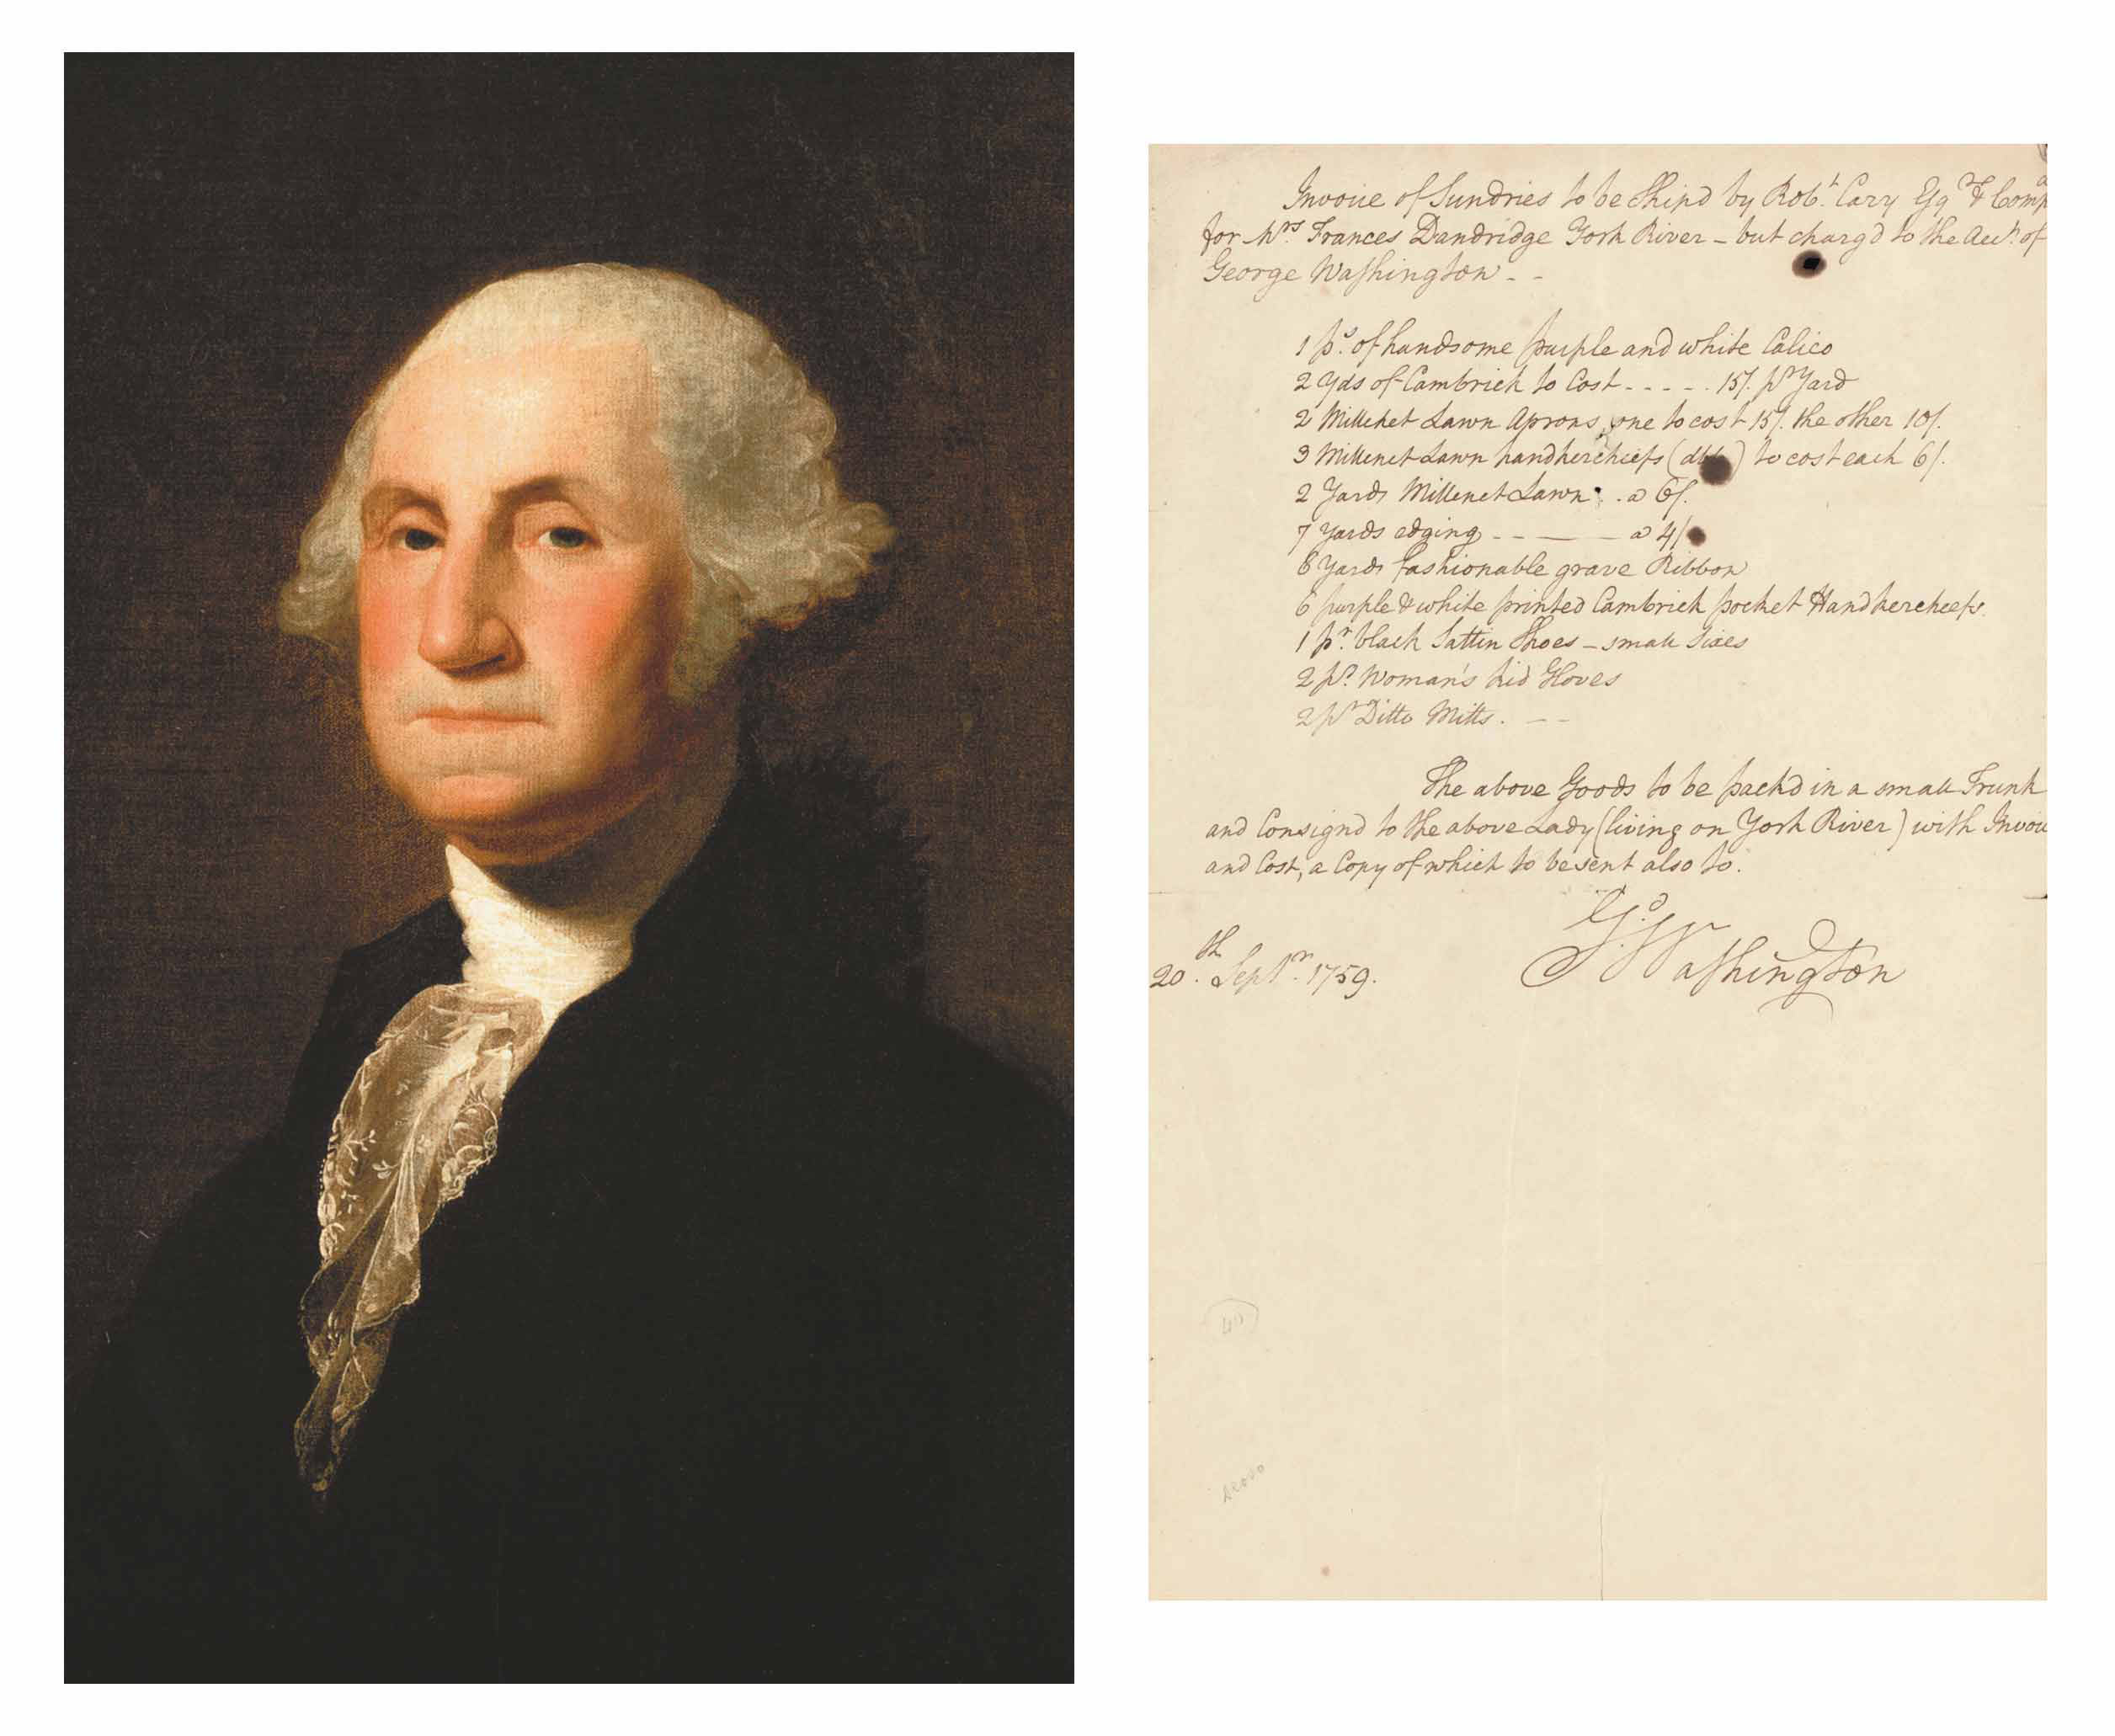 Invoice of Sundries to be Shipd by Robt. Cary Esqr & Comp
for Mrs Frances Dandridge York River – but chargd to the Acct. of
George Washington – –
1 ps. of handsome purple and white Calico
2 Yds of Cambrick to Cost - - - - - 15/. pr Yard
2 Millenet Lawn Aprons, one to cost 15/. the other 10/.
3 Millenet Lawn handkerchiefs (dble) to cost each 6/.
2 Yards Millenet Lawn . . a 6/.
7 yards edging - - — — - a 4/
8 Yards fashionable grave Ribbon
6 purple & white printed Cambrick pocket Handkercheefs.
1 pr. black Sattin Shoes – small sizes
2 pr. Woman's kid Gloves
2 pr Ditto Mitts. – –
The above Goods to be packd in a small Trunk
and Consignd to the above Lady (living on York River) with Invoi
and Cost, a Copy of which to be sent also to.
Go. Washington
20.th Septr. 1759.